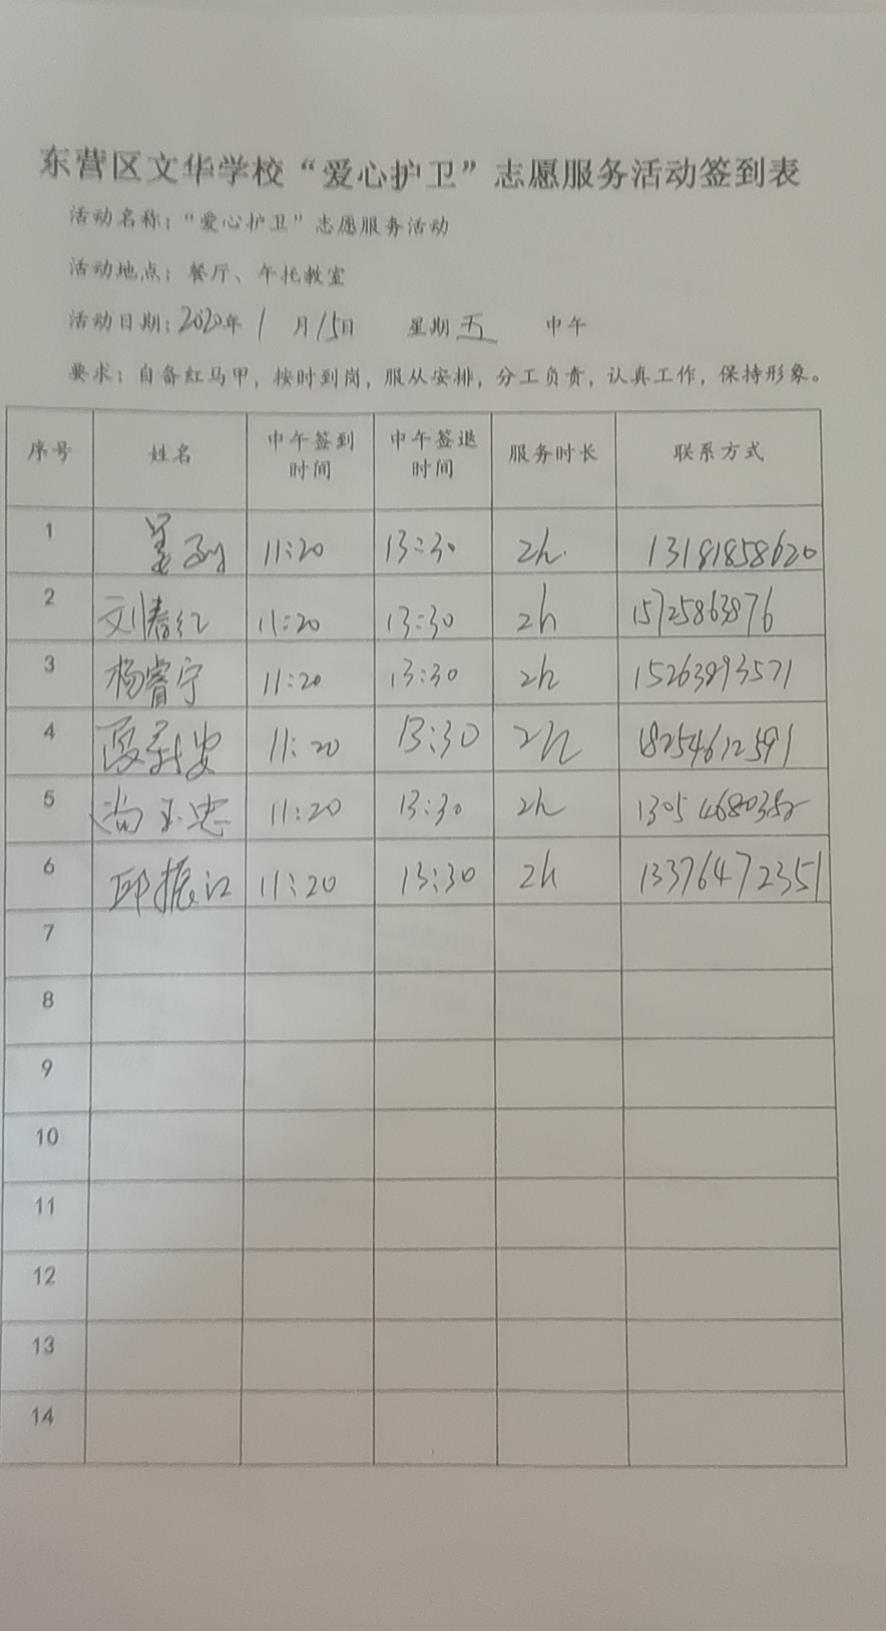 东营区文华学校“爱心护卫”志愿服务活动签到表
活动名称：“爱心护卫”志愿服务活动
活动地点：餐厅、午托教室
活动日期：2020年 1 月15日 星期 五 中午
要求：自备红马甲，按时到岗，服从安排，分工负责，认真工作，保持形象。
序号 姓名 中午签到时间 中午签退时间 服务时长 联系方式
1 11:20 13:30 2h. 13181858620
2 刘春红 11:20 13:30 2h 15725863876
3 杨睿宁 11:20 13:30 2h 15263893571
4 11:20 13:30 2h 18254612591
5 尚玉忠 11:20 13:30 2h
6 邱振江 11:20 13:30 2h 13376472351
7
8
9
10
11
12
13
14